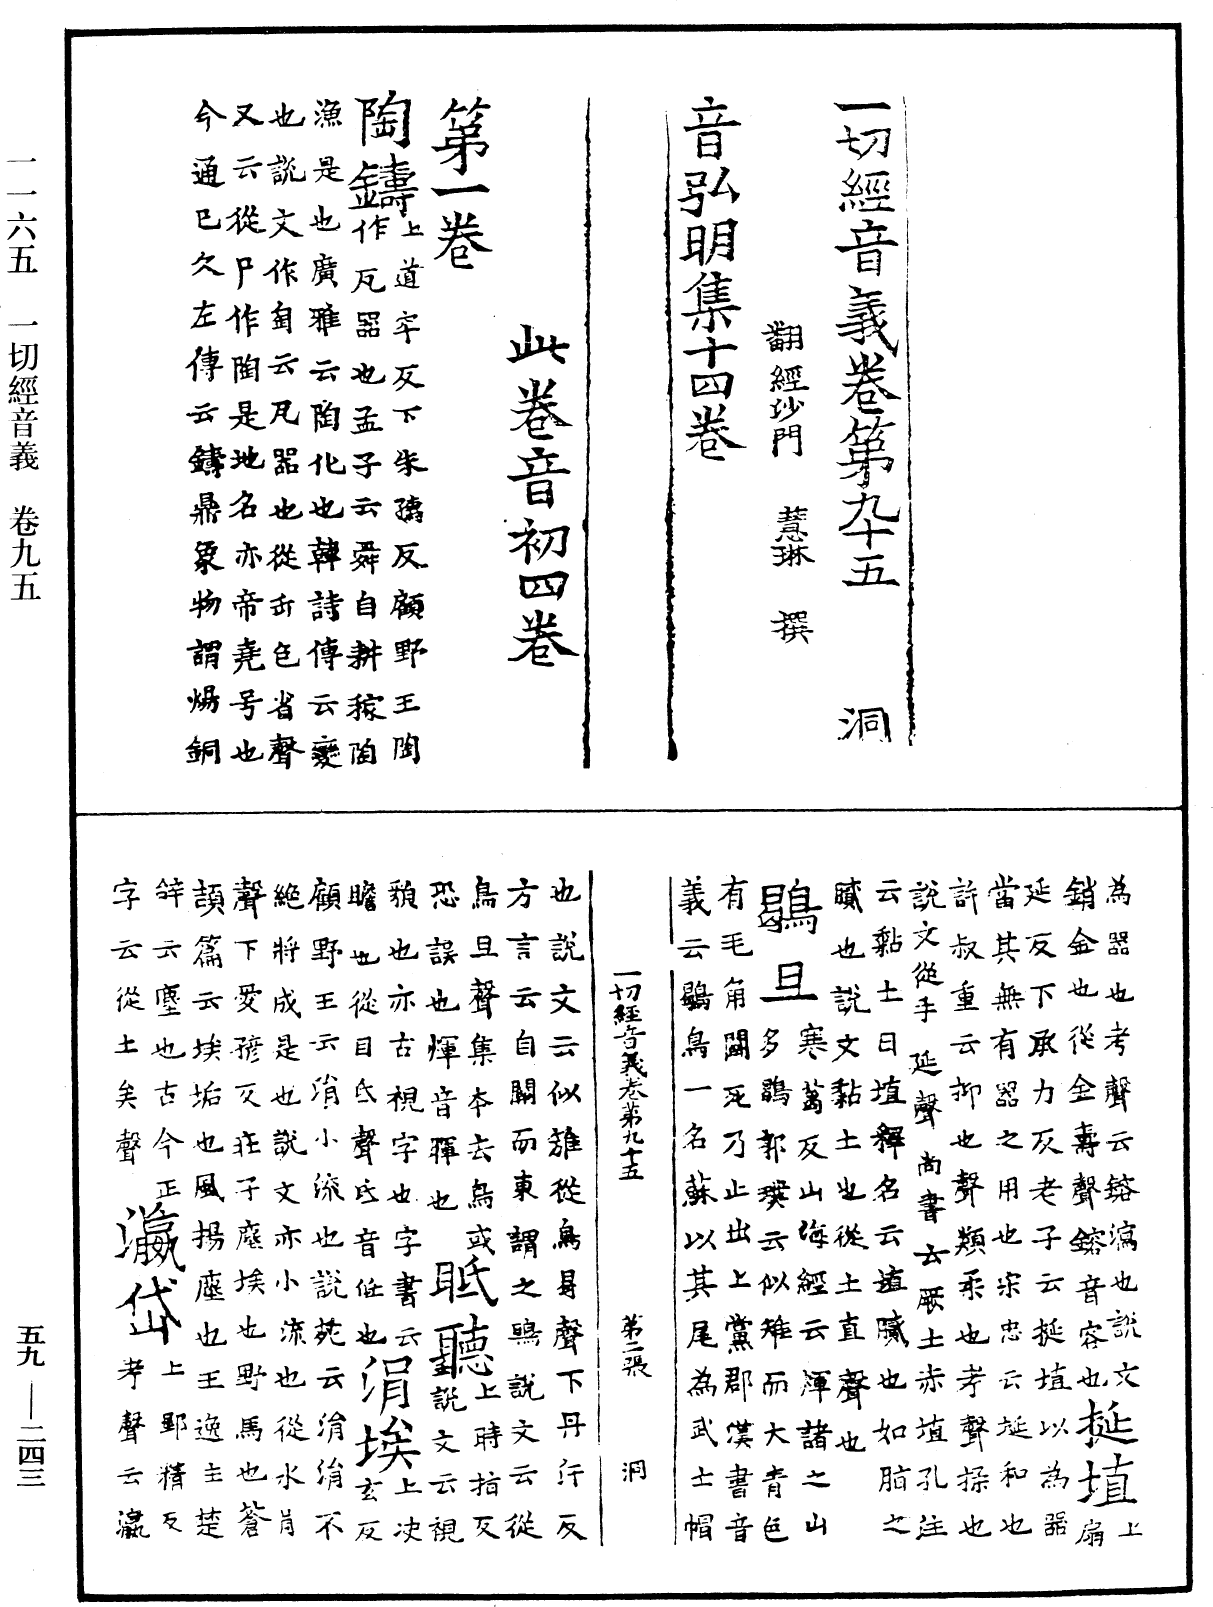 一一六五　一切經音義　卷九五
一切經音義卷第九十五　洞
翻經沙門　慧琳　撰
音弘明集十四卷
此卷音初四卷
第一卷
陶鑄上道牢反下朱孺反顧野王陶
作瓦器也孟子云舜自耕稼陶
漁是也廣雅云陶化也韓詩傳云變
也說文作匋云瓦器也從缶包省聲
又云從𠂤作陶是地名亦帝堯号也
今通巳久左傳云鑄鼎象物謂煬銅
為器也考聲云鎔瀉也說文
銷金也從金壽聲鎔音容也挻埴上扇
延反下承力反老子云挻埴以為器
當其無有器之用也宋忠云挻和也
許叔重云抑也聲類柔也考聲揉也
說文從手延聲尚書云厥土赤埴孔注
云黏土曰埴釋名云埴膱也如脂之
膱也說文黏土也從土直聲也
鶡旦寒葛反山海經云渾諸之山
多鶡郭璞云似雉而大青色
有毛角鬪死乃止出上黨郡漢書音
義云鶡鳥一名蘇以其尾為武士帽
一切經音義卷第九十五　第二張　洞
也說文云似雉從鳥曷聲下丹行反
方言云自關而東謂之鴠說文云從
鳥旦聲集本去鳥或
恐誤也煇音輝也眡聽上時指反
說文云視
貌也亦古視字也字書云
瞻也從目氐聲氐音低也涓埃上决
玄反
顧野王云涓小流也說苑云涓涓不
絕將成是也說文亦小流也從水肙
聲下愛𧫣反莊子塵埃也野馬也蒼
頡篇云埃垢也風揚塵也王逸主楚
辤云塵也古今正
字云從土矣聲瀛岱上郢精反
考聲云瀛
五九—二四三